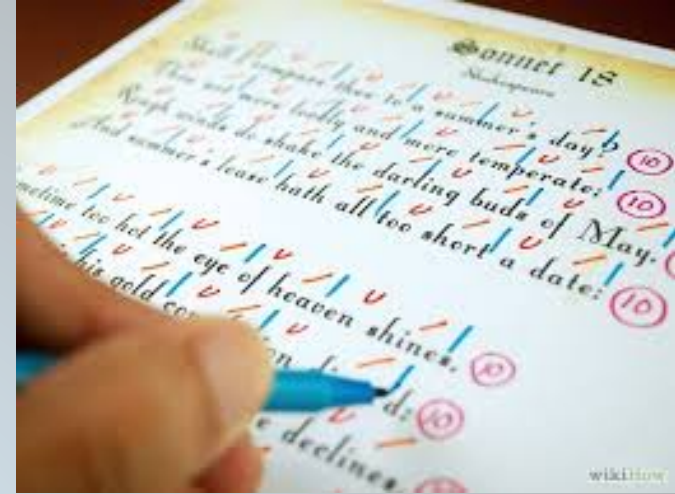 Sonnet 18
Shakespeare
Shall I compare thee to a summer's day?
10
Thou art more lovely and more temperate:
10
Rough winds do shake the darling buds of May,
And summer's lease hath all too short a date:
10
too hot the eye of heaven shines,
10
his gold
d:
10
declines,
wikiHow